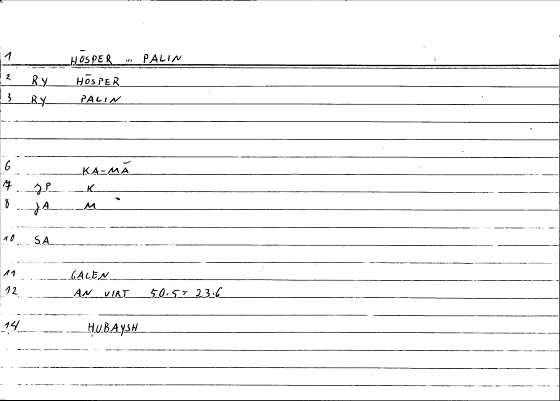 1 HŌSPER ... PALIN
2 RY HŌSPER
3 RY PALIN
6 KA-MĀ
7 JP K
8 JA M
10 SA
11 GALEN
12 AN VIRT 50.5 23.6
14 HUBAYSH